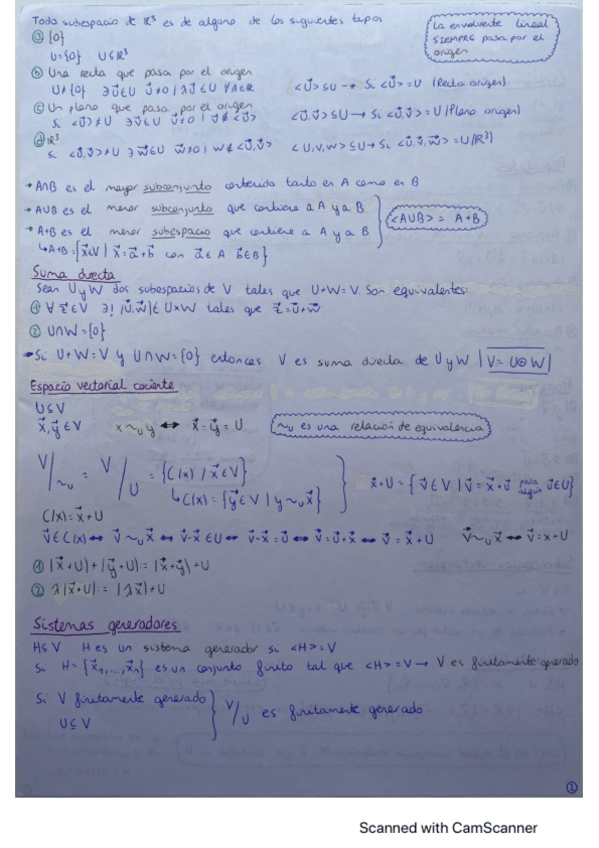 Todo subespacio de ℝ³ es de alguno de los siguientes tipos
ⓐ {0}
U={0} U≤ℝ³
La envolvente lineal
SIEMPRE pasa por el
origen
ⓑ Una recta que pasa por el origen
U≠{0} ∃ū∈U ū≠0 | λū∈U ∀λ∈ℝ <ū>≤U → Si <ū>=U (Recta origen)
ⓒ Un plano que pasa por el origen
Si <ū>≠U ∃v̄∈U v̄≠0 | v̄∉<ū> <ū,v̄>≤U → Si <ū,v̄>=U (Plano origen)
ⓓ ℝ³
Si <ū,v̄>≠U ∃w̄∈U w̄≠0 | w∉<ū,v̄> <U,V,W>≤U → Si <ū,v̄,w̄>=U(ℝ³)
→ A∩B es el mayor subconjunto contenido tanto en A como en B
→ A∪B es el menor subconjunto que contiene a A y a B
→ A+B es el menor subespacio que contiene a A y a B
<A∪B> = A+B
↳ A+B={x̄∈V | x̄=ā+b̄ con ā∈A b̄∈B}
Suma directa
Sean U y W dos subespacios de V tales que U+W=V. Son equivalentes:
① ∀ z̄∈V ∃! (ū,w̄)∈ U×W tales que z̄=ū+w̄
② U∩W={0}
→ Si U+W=V y U∩W={0} entonces V es suma directa de U y W |V=U⊕W|
Espacio vectorial cociente
U≤V
x̄,ȳ∈V x~ᵤy ↔ x̄-ȳ=U
~ᵤ es una relación de equivalencia
V/~ᵤ = V/U = {C(x) / x̄∈V}
↳ C(x)={ȳ∈V | y~ᵤx̄}
x̄+U={v̄∈V | v̄=x̄+ū para algún ū∈U}
C(x)=x̄+U
v̄∈C(x) ↔ v̄~ᵤx̄ ↔ v̄-x̄∈U ↔ v̄-x̄=ū ↔ v̄=ū+x̄ ↔ v̄=x̄+U v̄~ᵤx̄ ↔ v̄=x+U
① (x̄+U)+(ȳ+U):=(x̄+ȳ)+U
② λ(x̄+U):=(λx̄)+U
Sistemas generadores
H≤V H es un sistema generador si <H>=V
Si H={x̄₁,...,x̄ₙ} es un conjunto finito tal que <H>=V → V es finitamente generado
Si V finitamente generado
U≤V
V/U es finitamente generado
②
Scanned with CamScanner